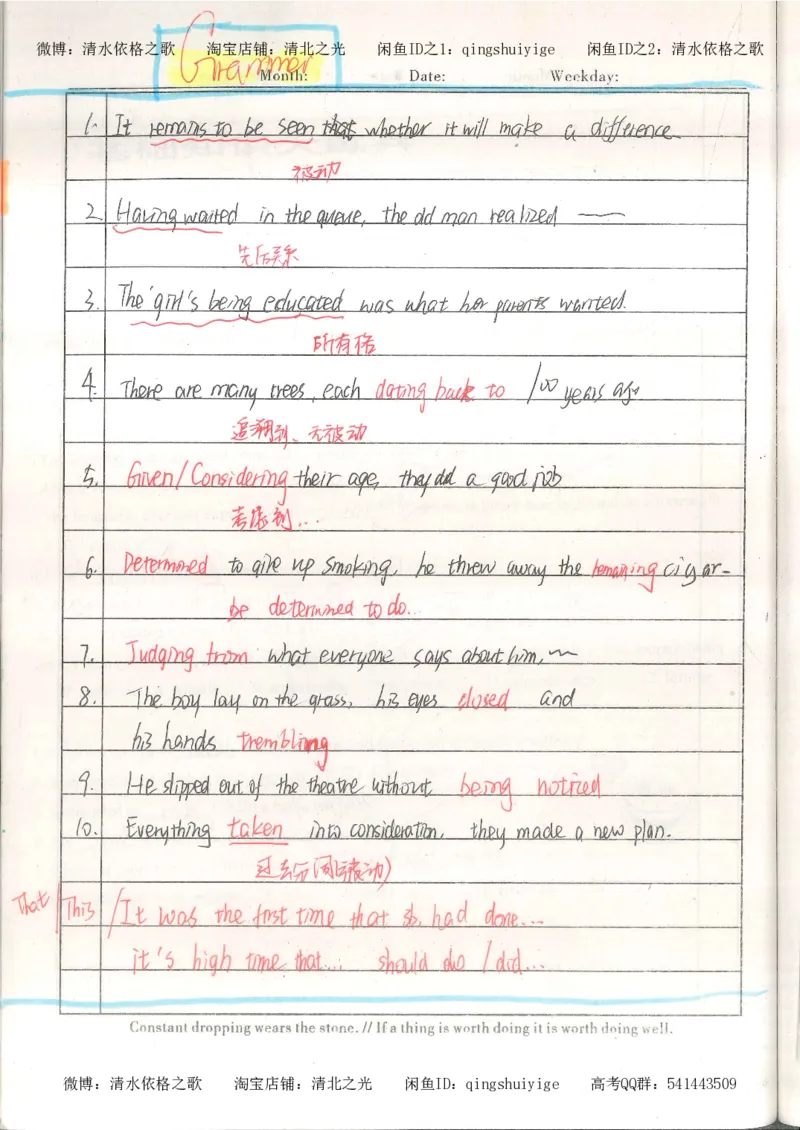 微博：清水依格之歌 淘宝店铺：清北之光 闲鱼ID之1：qingshuiyige 闲鱼ID之2：清水依格之歌
Grammer
Month: Date: Weekday:
1. It remains to be seen whether it will make a difference.
被动
2. Having waited in the queue, the old man realized ——
先后关系
3. The girl's being educated was what her parents wanted.
所有格
4. There are many trees, each dating back to 100 years ago
追溯到、无被动
5. Given/Considering their age, they did a good job
考虑到...
6. Determined to give up smoking, he threw away the remaining cigar-
be determined to do...
7. Judging from what everyone says about him, ~
8. The boy lay on the grass, his eyes closed and
his hands trembling
9. He slipped out of the theatre without being noticed
10. Everything taken into consideration, they made a new plan.
过去分(同时被动)
That/This/It was the first time that sb. had done...
it's high time that... should do / did...
Constant dropping wears the stone. // If a thing is worth doing it is worth doing well.
微博：清水依格之歌 淘宝店铺：清北之光 闲鱼ID：qingshuiyige 高考QQ群：541443509